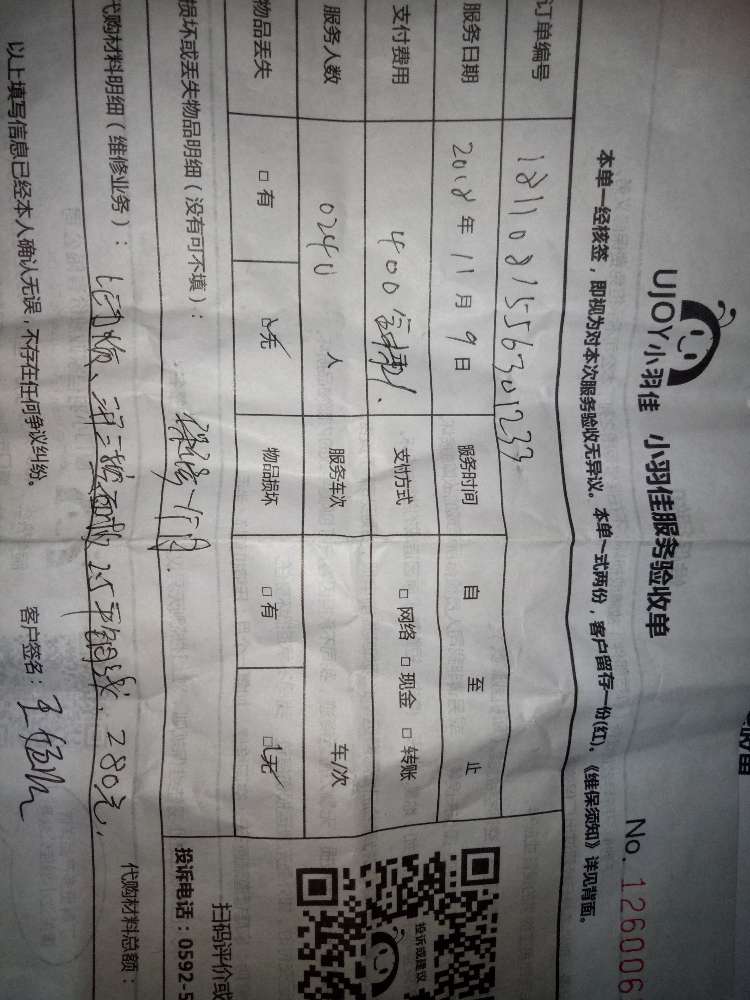 UJOY小羽佳 小羽佳服务验收单
No. 126006
本单一经核签，即视为对本次服务验收无异议。本单一式两份，客户留存一份(红)。《维保须知》详见背面。
订单编号 1811081556301233
服务日期 2018年11月9日 服务时间 自 至 止
支付费用 400 支付方式 □网络 □现金 □转账
服务人数 0240 人 服务车次 车/次
物品丢失 □有 □无 物品损坏 □有 □无
损坏或丢失物品明细（没有可不填）：
代购材料明细（维修业务）： 2.5平 280元.
代购材料总额：
以上填写信息已经本人确认无误，不存在任何争议纠纷。
客户签名：王
投诉或建议
扫码评价或
投诉电话：0592-5